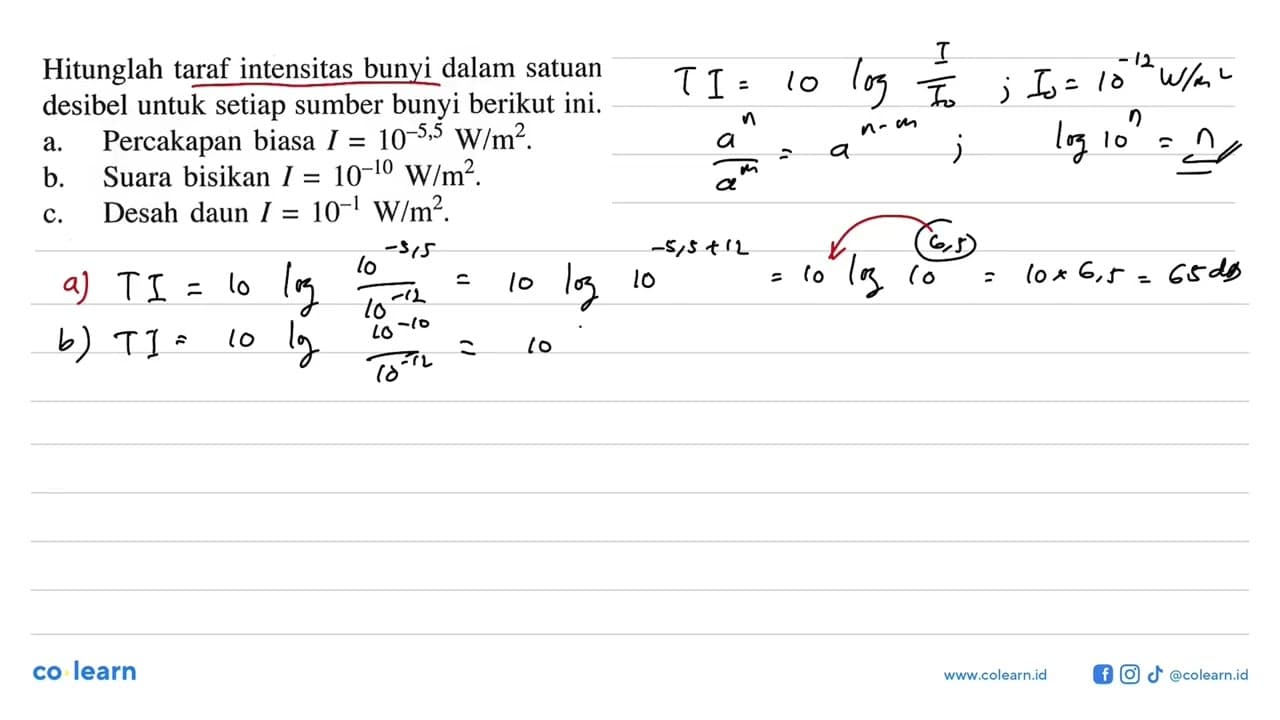 Hitunglah taraf intensitas bunyi dalam satuan
desibel untuk setiap sumber bunyi berikut ini.
a. Percakapan biasa I = 10^-5,5 W/m².
b. Suara bisikan I = 10^-10 W/m².
c. Desah daun I = 10^-1 W/m².
TI = 10 log I/I₀ ; I₀ = 10^-12 W/m²
a^n/a^m = a^n-m ; log 10^n = n
a) TI = 10 log 10^-5,5/10^-12 = 10 log 10^-5,5+12 = 10 log 10^6,5 = 10 × 6,5 = 65 dB
b) TI = 10 log 10^-10/10^-12 = 10
co learn
www.colearn.id
@colearn.id